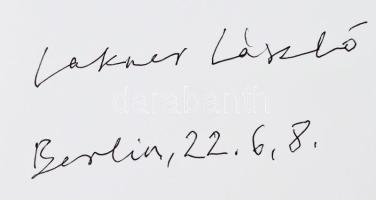 Lakner László
darabanth
Berlin, 22. 6, 8.